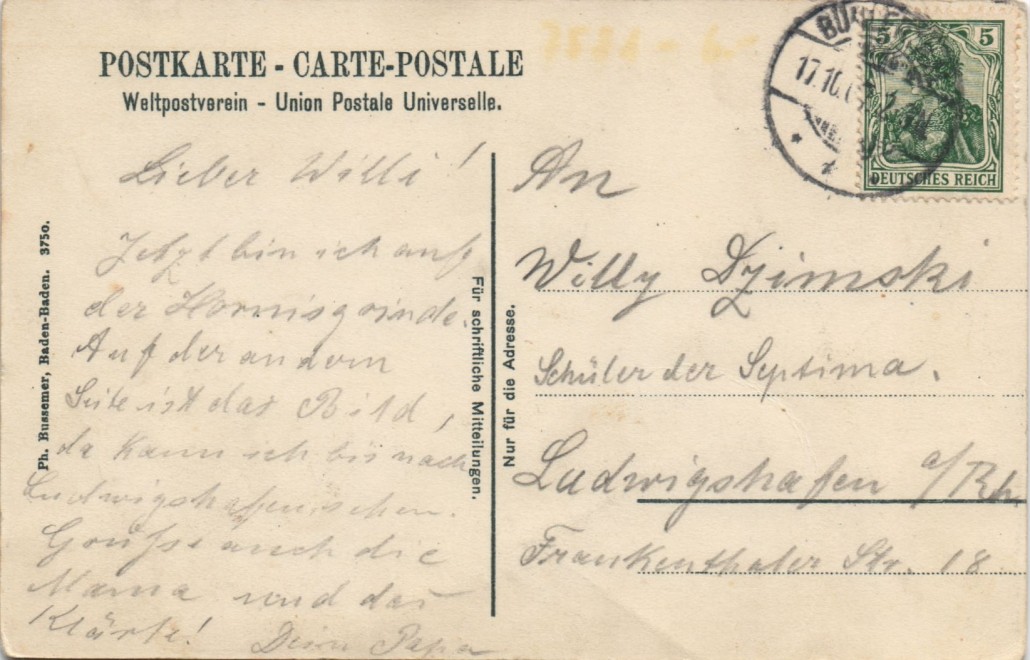 POSTKARTE - CARTE-POSTALE
Weltpostverein - Union Postale Universelle.
Ph. Bussemer, Baden-Baden. 3750.
Lieber Willi!
Jetzt bin ich auf
der Hornisgrinde.
Auf der andern
Seite ist das Bild,
da kann ich bis nach
Ludwigshafen sehen.
Grüsse auch die
Mama und das
Klärle! Dein Papa
Für schriftliche Mitteilungen.
Nur für die Adresse.
17.10.
5 5
DEUTSCHES REICH
An
Willy Dzimski
Schüler der Septima.
Ludwigshafen a/Rh.
Frankenthaler Str. 18